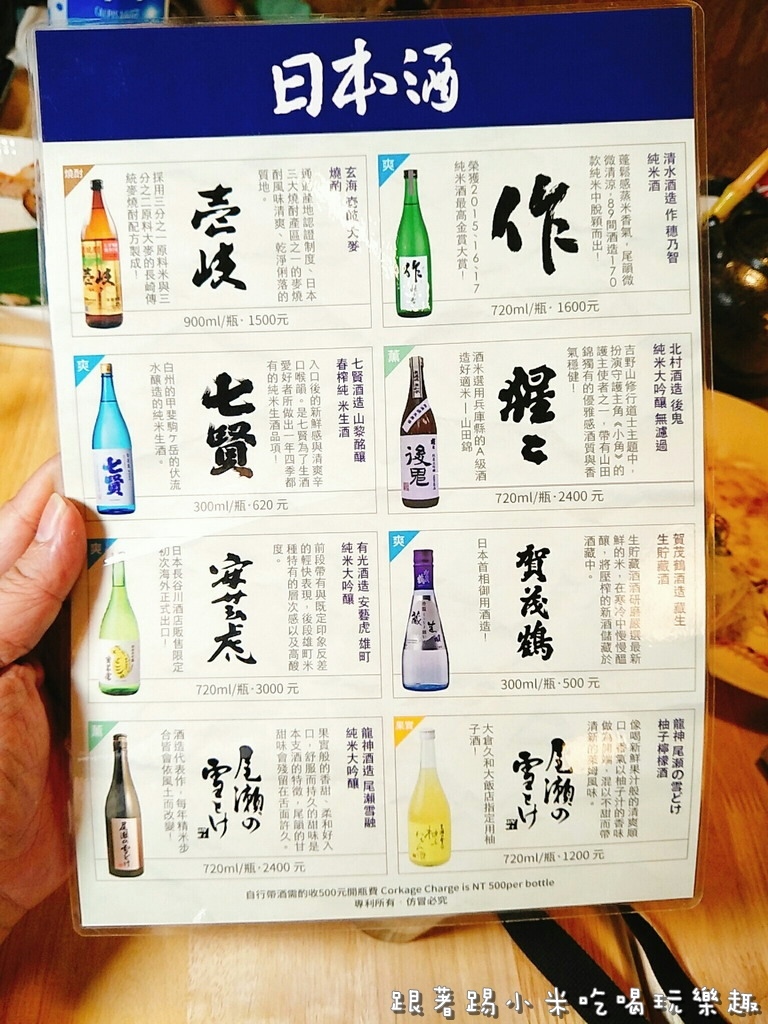 日本酒
清水酒造 作 穗乃智
純米酒
蓬鬆感蒸米香氣，尾韻微
微清涼，89間酒造170
款純米中脫穎而出！
作
榮獲2015、16、17
純米酒最高金賞大賞！
爽
720ml/瓶· 1600元
玄海 壱岐 大麥
燒酌
通過產地認證制度、日本
三大燒酎產區之一的麥燒
酎風味清爽、乾淨俐落的
質地。
壱岐
採用三分之一原料米與三
分之二原料大麥的長崎傳
統麥燒酎配方製成！
燒酎
900ml/瓶· 1500元
北村酒造 後鬼
純米大吟釀 無濾過
吉野山修行道士主題中，
扮演守護主角《小角》的
護主使者之一，帶有山田
錦獨有的優雅感酒質與香
氣穩健！
猩々
酒米選用兵庫縣的A級酒
造好適米—山田錦
薰
後鬼
720ml/瓶·2400 元
七賢酒造 山黎酩釀
春榨純 米生酒
入口後的新鮮感與清爽辛
口喉韻。是七賢為了生酒
愛好者所做出一年四季都
有的純米生酒品項！
七賢
白州的甲斐駒ヶ岳的伏流
水釀造的純米生酒。
爽
七賢
300ml/瓶·620 元
賀茂鶴酒造 藏生
生貯藏酒
生貯藏酒酒研磨嚴選最新
鮮的米，在寒冷中慢慢醞
釀，將壓榨的新酒儲藏於
酒藏中。
賀茂鶴
日本首相御用酒造！
爽
300ml/瓶·500 元
有光酒造 安藝虎 雄町
純米大吟釀
前段帶有與既定印象反差
的輕快表現，後段雄町米
種特有的層次感以及高酸
度。
安芸虎
日本長谷川酒店販售限定
初次海外正式出口！
爽
720ml/瓶·3000 元
龍神 尾瀨の雪どけ
柚子檸檬酒
像喝新鮮果汁般的清爽順
口，香氣以柚子汁的香味
做為開端，混以不甜而帶
清新的萊姆風味。
尾瀬の
雪どけ
大倉久和大飯店指定用柚
子酒！
果實
720ml/瓶·1200 元
龍神酒造 尾瀨雪融
純米大吟釀
果實般的香甜、柔和好入
口，舒服而持久的甜味是
本支酒的特徵，尾韻的甘
甜味會殘留在舌面許久。
尾瀬の
雪どけ
酒造代表作，每年精米步
合皆會依風土而改變！
薰
尾瀬の雪どけ
720ml/瓶·2400 元
自行帶酒需酌收500元開瓶費 Corkage Charge is NT 500per bottle
專利所有．仿冒必究
跟著踢小米吃喝玩樂趣